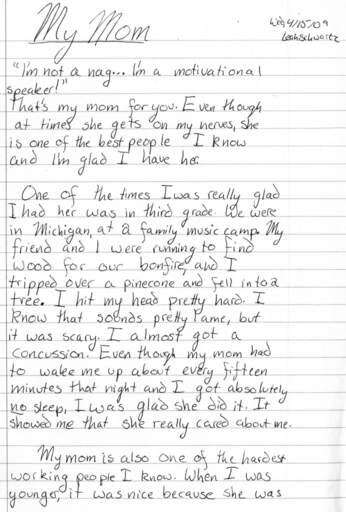 My Mom
Wed 4/15/09
Leah Schwartz
"I'm not a nag... I'm a motivational
speaker!"
That's my mom for you. Even though
at times she gets on my nerves, she
is one of the best people I know
and I'm glad I have her.
One of the times I was really glad
I had her was in third grade. We were
in Michigan, at a family music camp. My
friend and I were running to find
wood for our bonfire, and I
tripped over a pinecone and fell into a
tree. I hit my head pretty hard. I
know that sounds pretty lame, but
it was scary. I almost got a
concussion. Even though my mom had
to wake me up about every fifteen
minutes that night and I got absolutely
no sleep, I was glad she did it. It
showed me that she really cared about me.
My mom is also one of the hardest
working people I know. When I was
younger, it was nice because she was